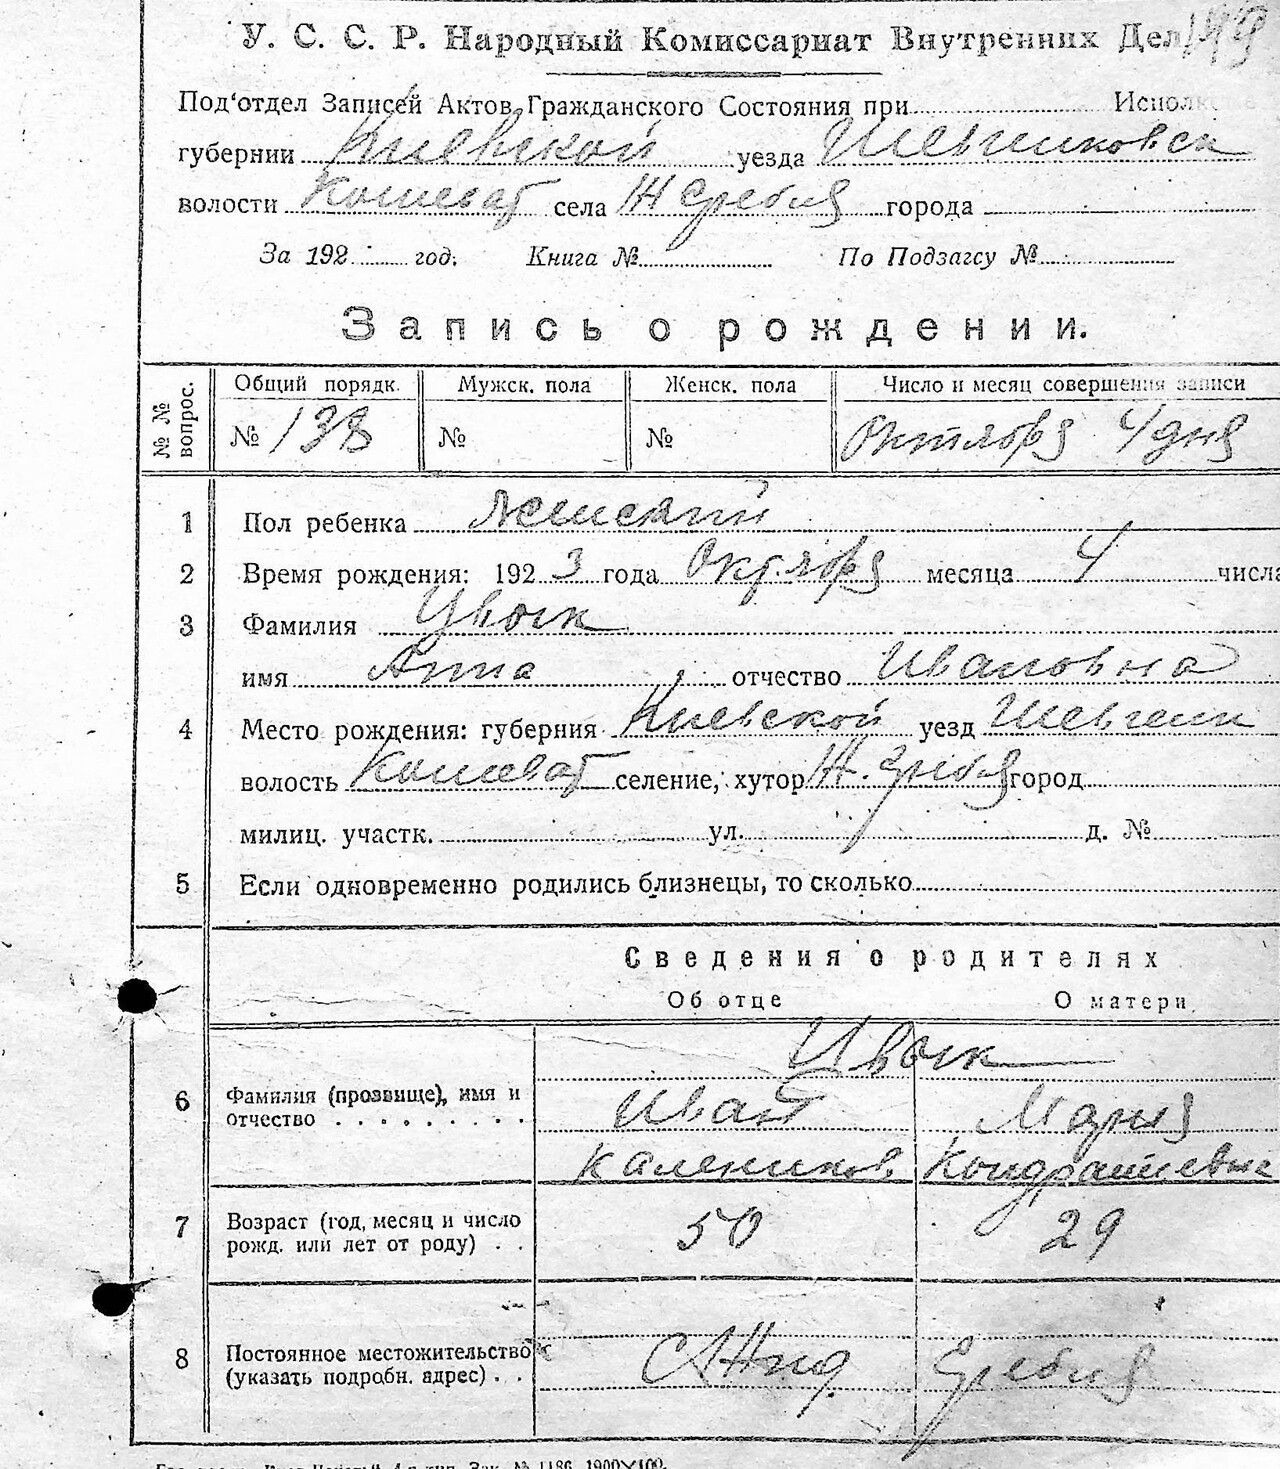 У. С. С. Р. Народный Комиссариат Внутренних Дел
Под'отдел Записей Актов Гражданского Состояния при
губернии Киевской уезда Шевченковск
волости Кошеват села Ж Еребия города
За 192 год. Книга № По Подзагсу №
Запись о рождении.
№ № вопрос. Общий порядк. Мужск. пола Женск. пола Число и месяц совершения записи
№ 138 № № Октября 4 дня
1 Пол ребенка Женский
2 Время рождения: 1923 года Октября месяца 4 числа
3 Фамилия Цвык
имя Анна отчество Ивановна
4 Место рождения: губерния Киевской уезд Шевченк
волость Кошеват селение, хутор Ж. город
милиц. участк. ул. д. №
5 Если одновременно родились близнецы, то сколько
Сведения о родителях
Об отце О матери
Цвык
6 Фамилия (прозвище), имя и Иван Мария
отчество Калеников Кондратиевна
7 Возраст (год, месяц и число 50 29
рожд. или лет от роду)
8 Постоянное местожительство С Жид Еребия
(указать подробн. адрес)